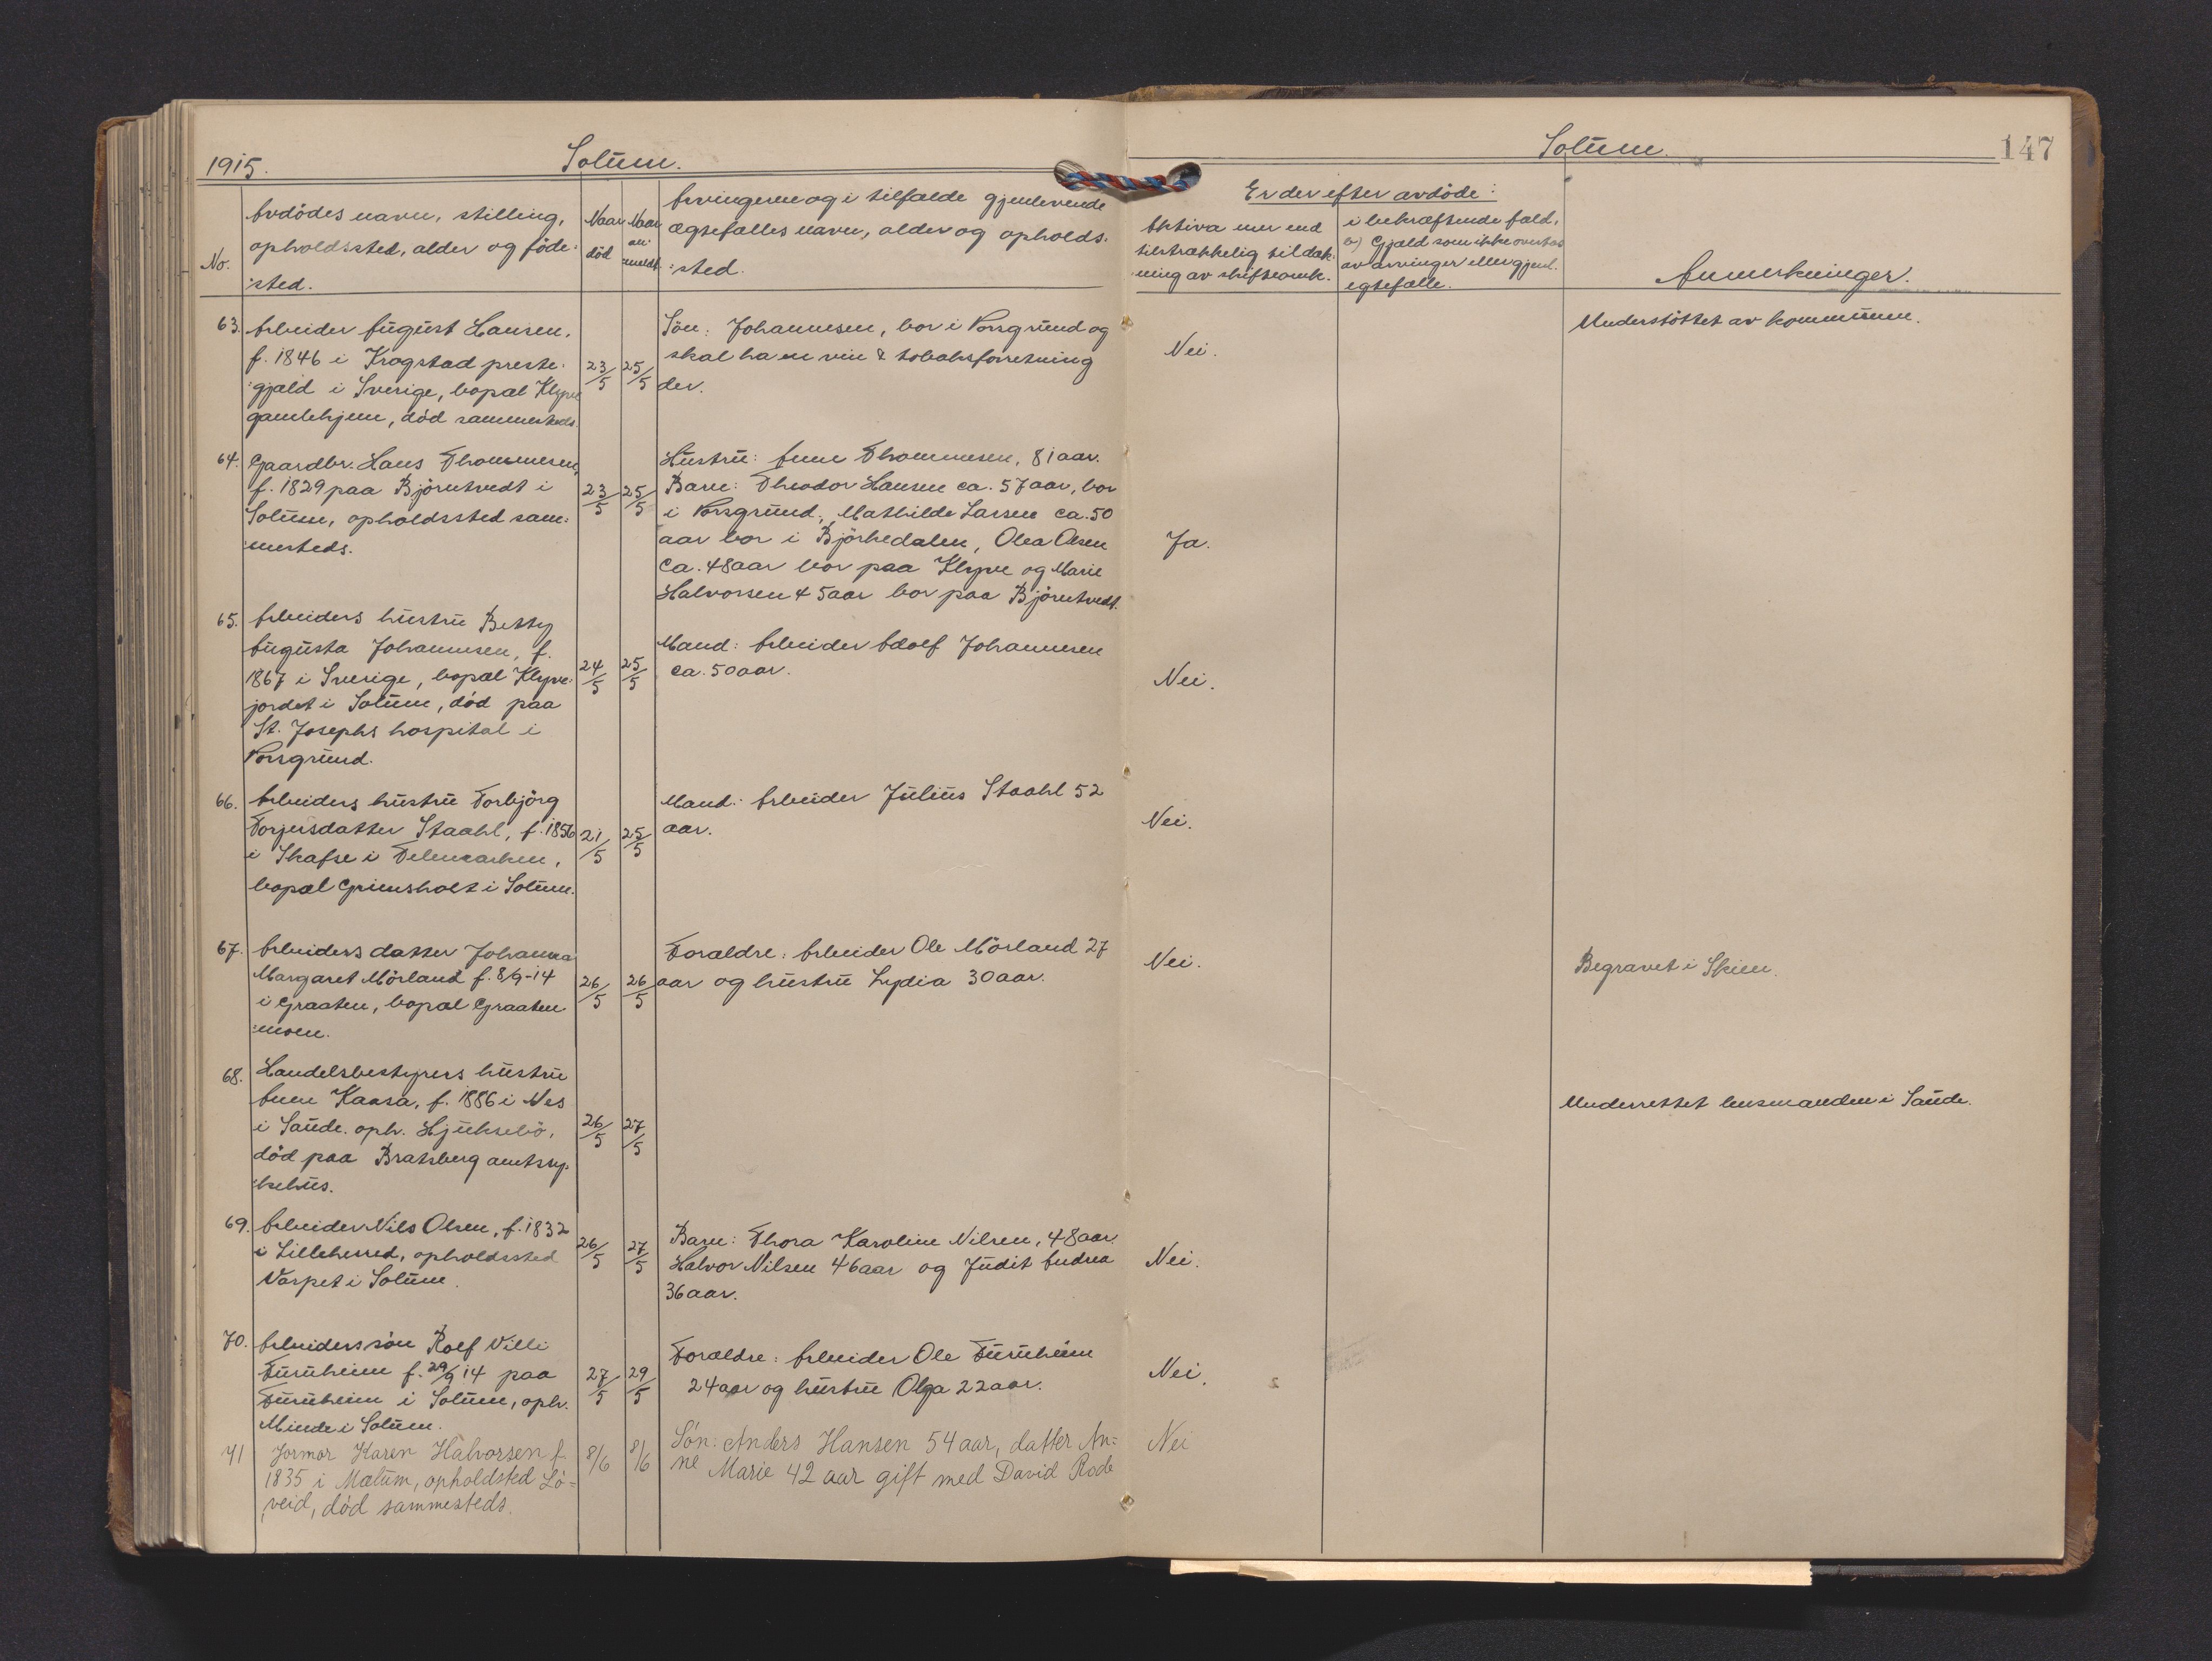 1915.
Solum.
No.
Avdödes navn, stilling,
opholdssted, alder og föde:
:sted.
Naar
död
Naar
an:
meldt.
Arvingerne og i tilfælde gjenlevende
ægtefælles navn, alder og opholds:
:sted.
63. Arbeider August Hansen,
f. 1846 i Krogstad preste:
:gjæld i Sverige, bopæl Klyve
gamlehjem, död sammesteds.
23/5
25/5
Sön: Johannesen, bor i Porsgrund og
skal ha en vin & tobaksforretning
der.
64. Gaardbr. Hans Thommesen,
f. 1829 paa Björntvedt i
Solum, opholdssted sam:
mesteds.
23/5
25/5
Hustru: Anne Thommesen, 81 aar.
Barn: Theodor Hansen ca. 57 aar, bor
i Porsgrund, Mathilde Larsen ca. 50
aar bor i Björkedalen, Olea Olsen
ca. 48 aar bor paa Klyve og Marie
Halvorsen 45 aar bor paa Björntvedt.
65. Arbeiders hustru Betty
Augusta Johannesen, f.
1867 i Sverige, bopæl Klyve:
jordet i Solum, död paa
St. Josephs hospital i
Porsgrund.
24/5
25/5
Mand: Arbeider Adolf Johannesen
ca. 50 aar.
66. Arbeiders hustru Torbjörg
Torjersdatter Staahl, f. 1856
i Skafse i Telemarken,
bopæl Grimsholt i Solum.
21/5
25/5
Mand: Arbeider Julius Staahl 52
aar.
67. Arbeiders datter Johanna
Margaret Mörland f. 8/9-14
i Graaten, bopæl Graaten
:moen.
26/5
26/5
Forældre: Arbeider Ole Mörland 27
aar og hustru Lydia 30 aar.
68. Handelsbestyrers hustru
Anne Kaasa, f. 1886 i Nes
i Saude. oph. Hjuksebö,
död paa Bratsberg amtssy:
kehus.
26/5
27/5
69. Arbeider Nils Olsen, f. 1832
i Lilleherred, opholdssted
Varpet i Solum.
26/5
27/5
Barn: Thora Karoline Nilsen, 48 aar.
Halvor Nilsen 46 aar og Judit Andrea
36 aar.
70. Arbeiders sön Rolf Villi
Furuheim f. 29/9 14 paa
Furuheim i Solum, oph.
Minde i Solum.
27/5
29/5
Forældre: Arbeider Ole Furuheim
24 aar og hustru Olga 22 aar.
71 Jormor Karen Halvorsen f.
1835 i Mælum, opholdsted Lö=
veid, död sammesteds.
8/6
8/6
Sön: Anders Hansen 54 aar, datter An:
ne Marie 42 aar gift med David Rode
Solum.
147
Er der efter avdöde:
Aktiva mer end
tilstrækkelig til dæk:
:ning av skifteomk.
i bekræftende fald,
Gjæld som ikke overtas
av arvinger eller gjenl.
egtefælle.
Anmerkninger.
Nei.
Understöttet av kommunen.
Ja.
Nei.
Nei.
Nei.
Begravet i Skien.
Underrettet lensmanden i Saude.
Nei.
Nei.
Nei